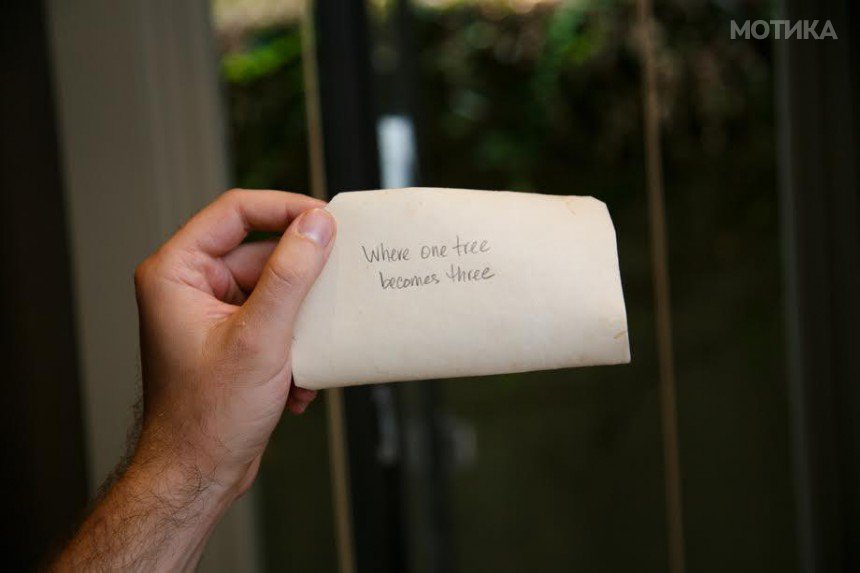 МОТИКА
Where one tree
becomes three